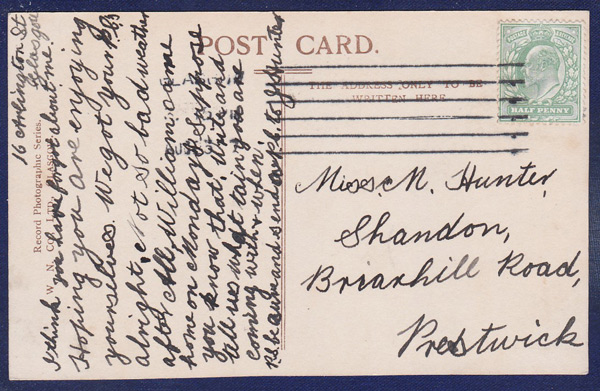 POST CARD.
THE ADDRESS ONLY TO BE
WRITTEN HERE
POSTAGE & REVENUE
HALF PENNY
Miss. M. Hunter,
Shandon,
Briarhill Road,
Prestwick
16 Arlington St
Glasgow
I think you have forgot about me.
Hoping you are enjoying
yourselves. We got your P.C.
alright. Not so bad weather
after all. William came
home on Monday I suppose
you know that. Write and
tell us what train you are
coming with & when.
Record Photographic Series.
W. N. Co. LTD., GLASGOW